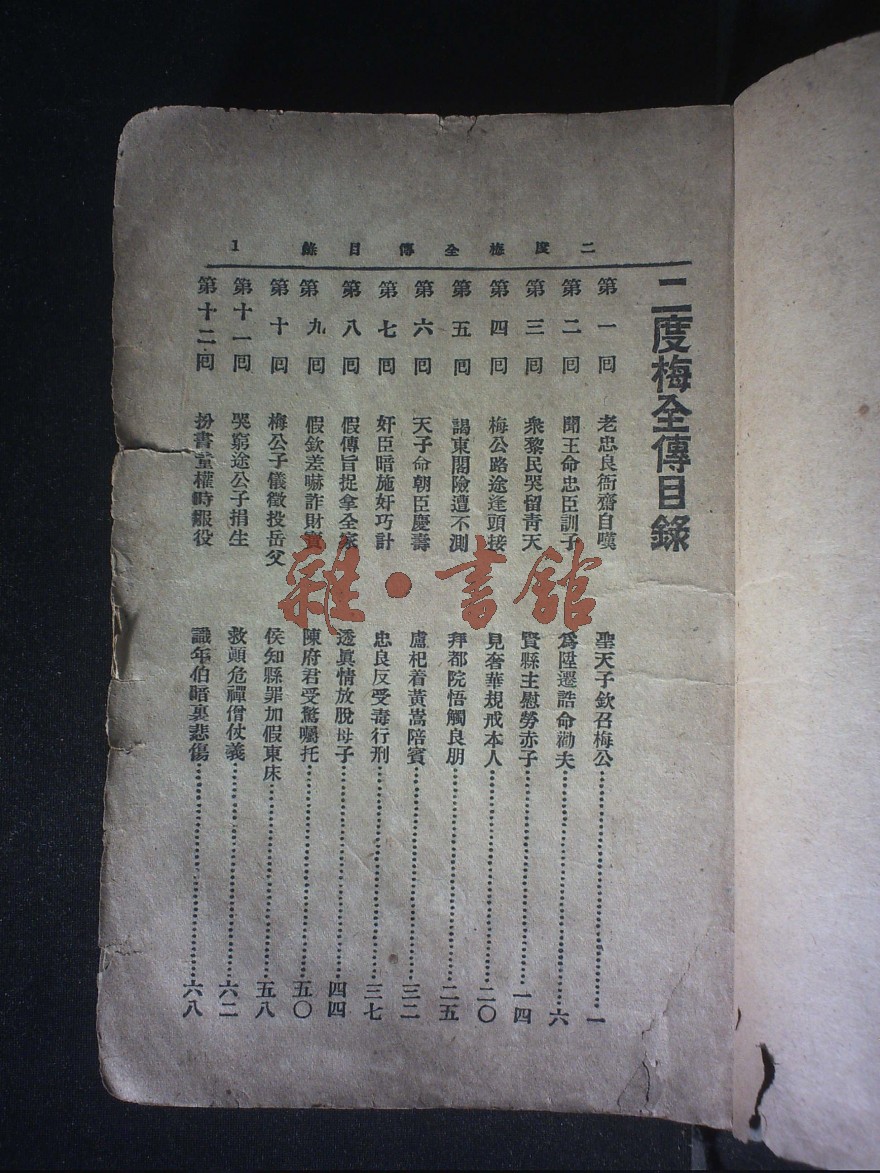 二度梅全傳目錄 1
二度梅全傳目錄
第一回 老忠良衙齋自嘆 聖天子欽召梅公 一
第二回 聞王命忠臣訓子 爲陞遷誥命勸夫 六
第三回 衆黎民哭留靑天 賢縣主慰勞赤子 一四
第四回 梅公路途逢頭接 見奢華規戒本人 二〇
第五回 謁東閣險遭不測 拜都院悟觸良朋 二五
第六回 天子命朝臣慶壽 盧杞着黃嵩陪賓 三二
第七回 奸臣暗施奸巧計 忠良反受毒行刑 三七
第八回 假傳旨捉拿全家 透眞情放脫母子 四四
第九回 假欽差嚇詐財寶 陳府君受驚囑托 五〇
第十回 梅公子儀徵投岳父 侯知縣罪加假東床 五八
第十一回 哭窮途公子捐生 救顚危禪僧仗義 六二
第十二回 扮書童權時服役 識年伯暗裏悲傷 六八
雜·書館